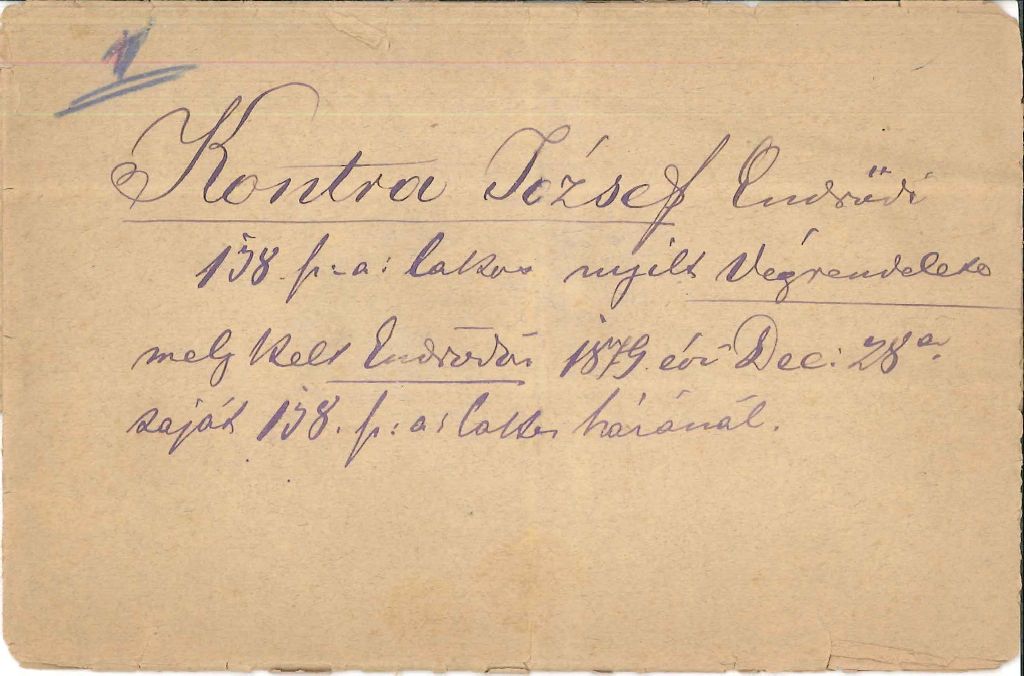 1
Kontra József Endrődi
158 sz: a: lakos nyílt Végrendelete
mely kelt Endrődön 1879. évi Dec: 28án
saját 158. sz: a: lakos házánál.